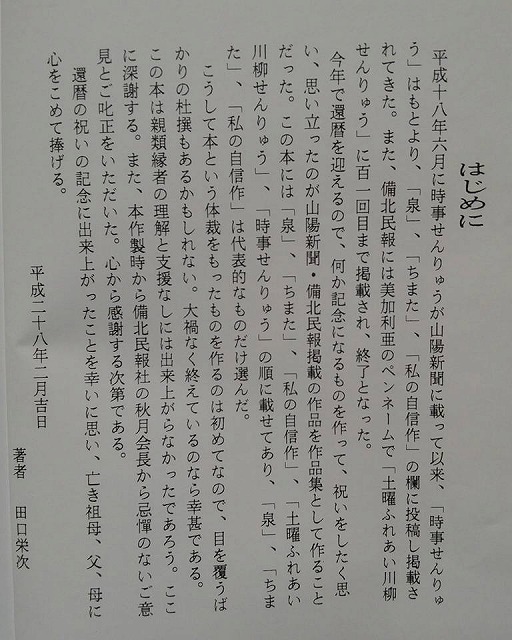 はじめに
平成十八年六月に時事せんりゅうが山陽新聞に載って以来、「時事せんりゅ
う」はもとより、「泉」、「ちまた」、「私の自信作」の欄に投稿し掲載さ
れてきた。また、備北民報には美加利亜のペンネームで「土曜ふれあい川柳
せんりゅう」に百一回目まで掲載され、終了となった。
今年で還暦を迎えるので、何か記念になるものを作って、祝いをしたく思
い、思い立ったのが山陽新聞・備北民報掲載の作品を作品集として作ること
だった。この本には「泉」、「ちまた」、「私の自信作」、「土曜ふれあい
川柳せんりゅう」、「時事せんりゅう」の順に載せてあり、「泉」、「ちま
た」、「私の自信作」は代表的なものだけ選んだ。
こうして本という体裁をもったものを作るのは初めてなので、目を覆うば
かりの杜撰もあるかもしれない。大禍なく終えているのなら幸甚である。
この本は親類縁者の理解と支援なしには出来上がらなかったであろう。ここ
に深謝する。また、本作製時から備北民報社の秋月会長から忌憚のないご意
見とご叱正をいただいた。心から感謝する次第である。
還暦の祝いの記念に出来上がったことを幸いに思い、亡き祖母、父、母に
心をこめて捧げる。
平成二十八年二月吉日
著者 田口栄次